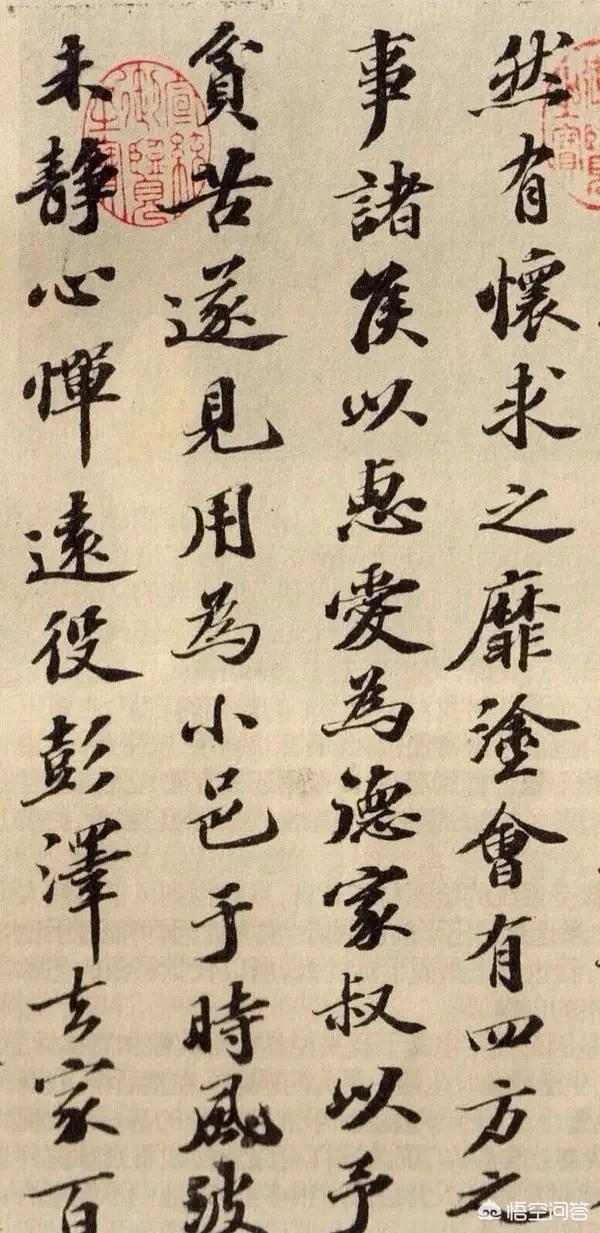 然有懷求之靡塗會有四方之
事諸侯以惠愛為德家叔以予
貧苦遂見用為小邑于時風波
未靜心憚遠役彭澤去家百
宣統御覽之寶
悟空问答